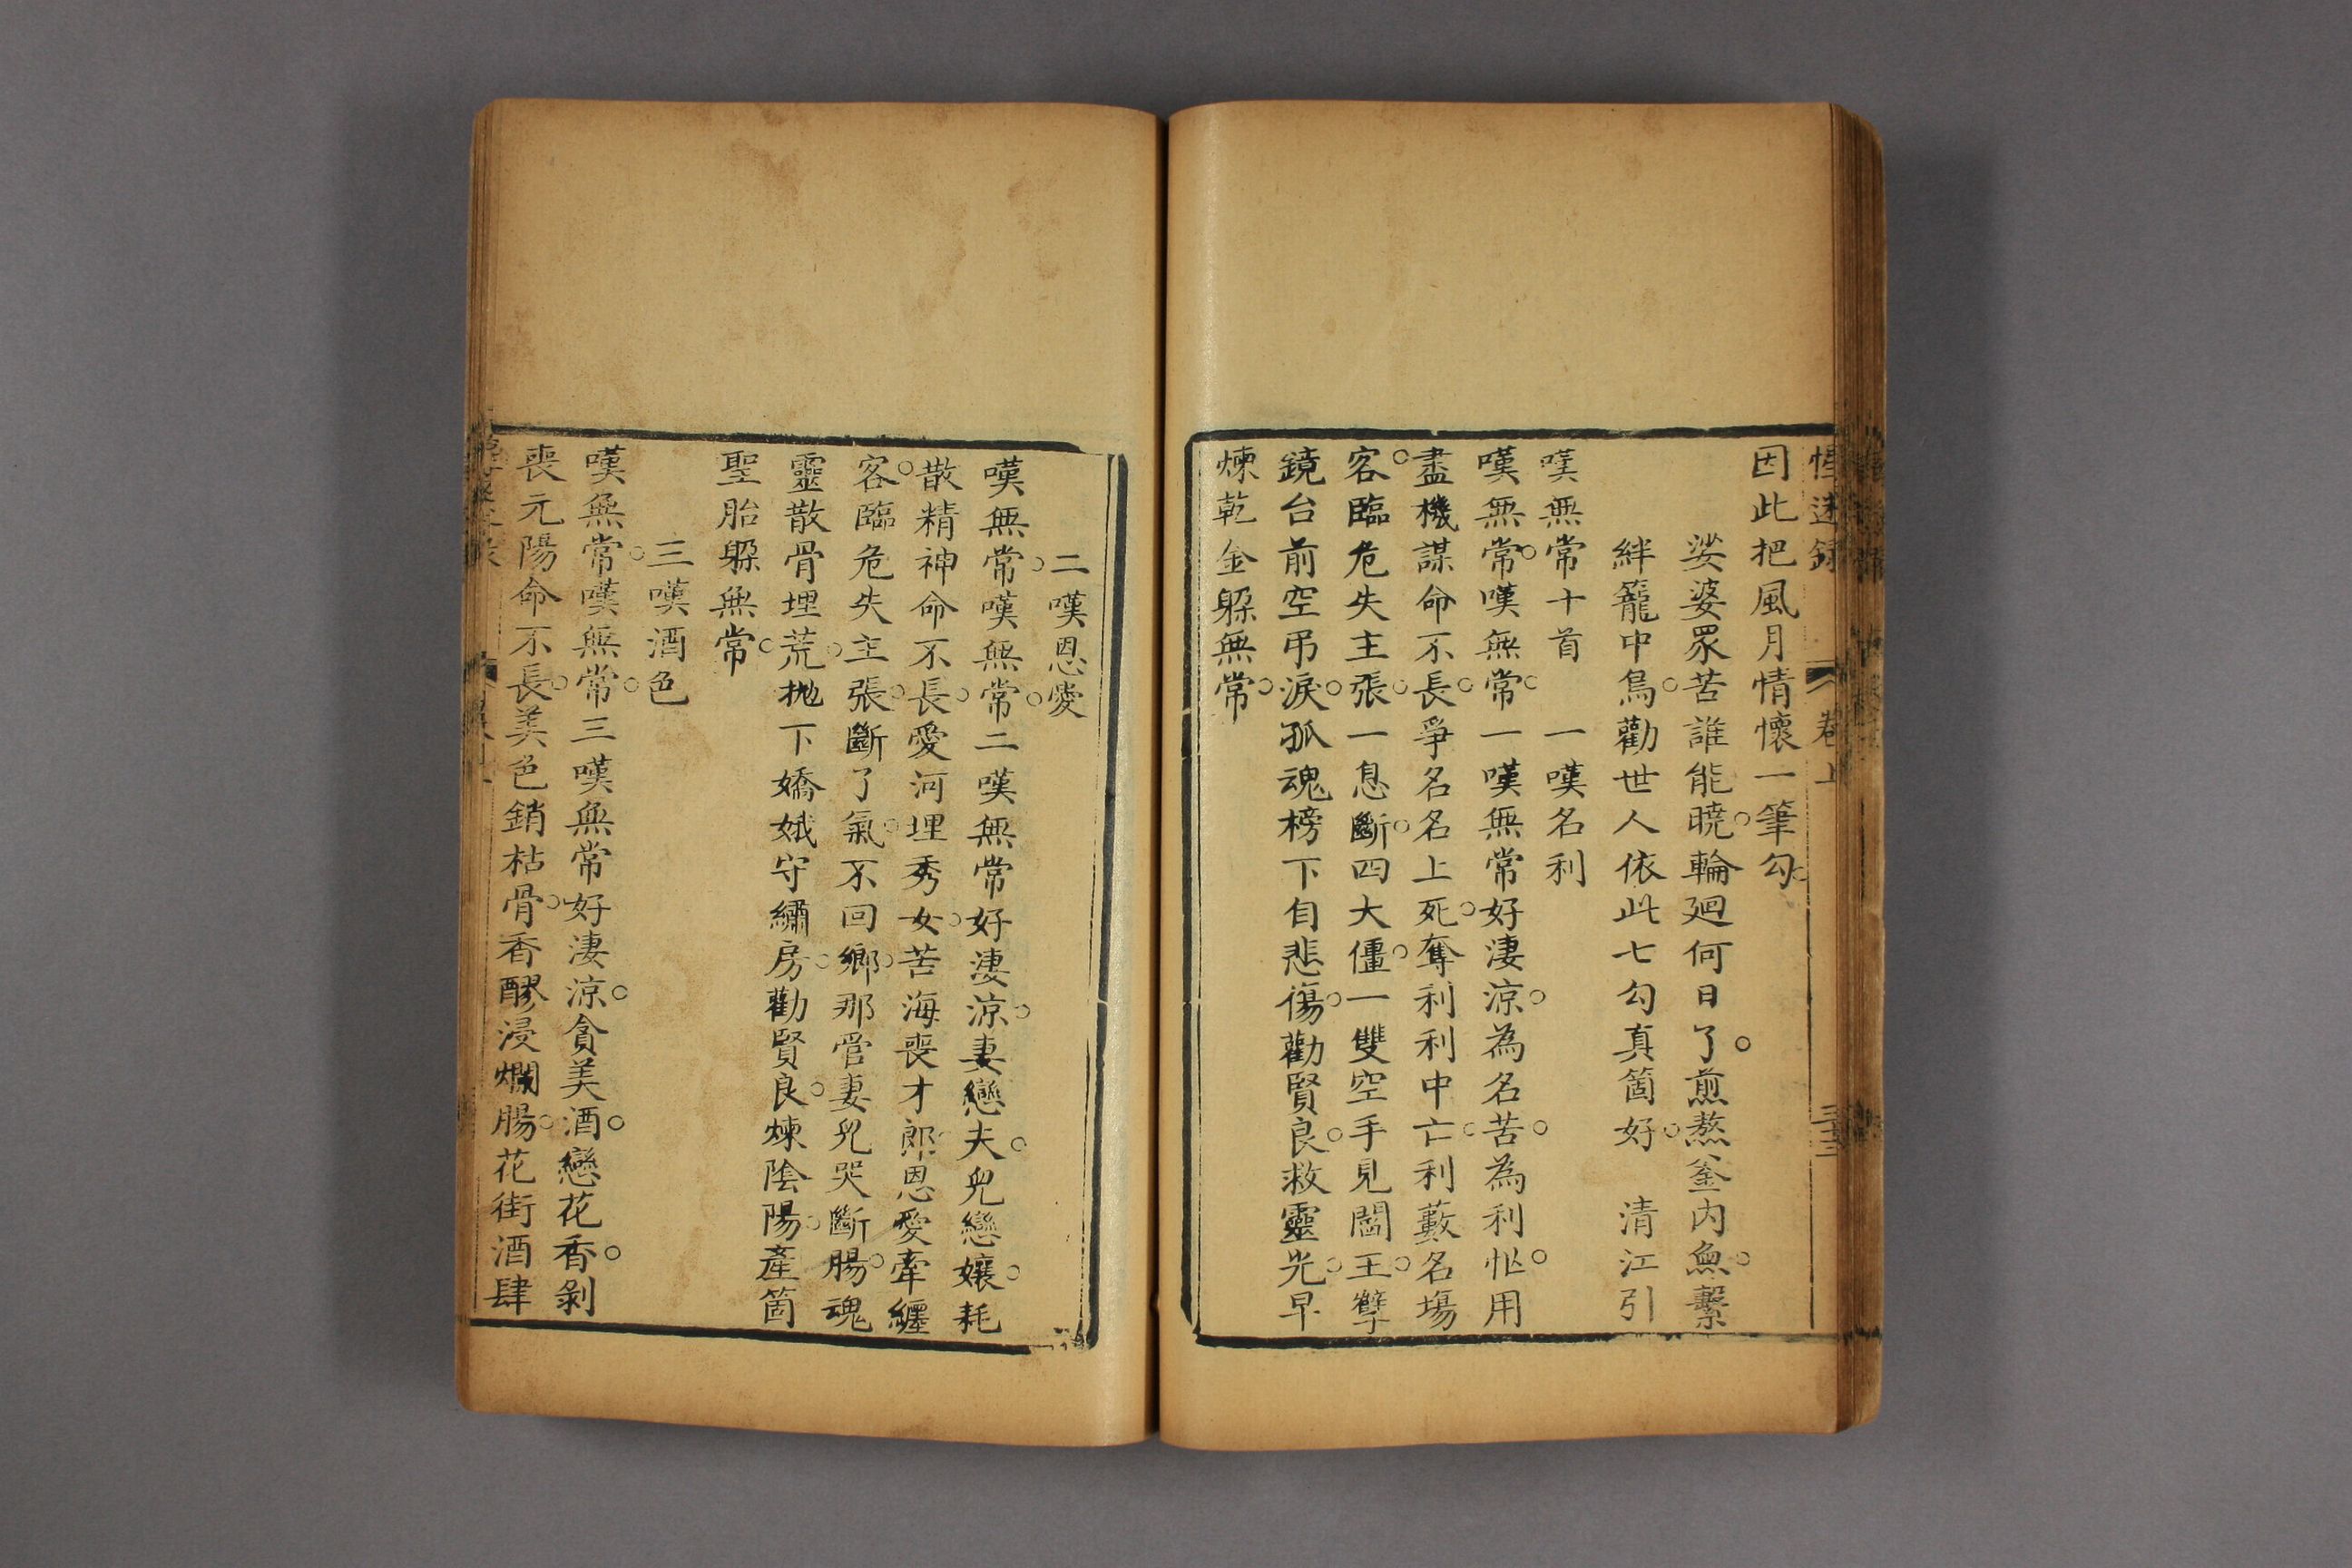 惺迷錄 卷上 三三
因此把風月情懷一筆勾。
娑婆眾苦誰能曉。輪廻何日了。煎熬釜内魚。繫
絆籠中鳥。勸世人依此七勾真箇好。 清江引
嘆無常十首 一嘆名利
嘆無常。嘆無常。一嘆無常好淒涼。為名苦。為利忙。用
盡機謀命不長。爭名名上死。奪利利中亡。利藪名場
客。臨危失主張。一息斷。四大僵。一雙空手見閻王。孽
鏡台前空弔淚。孤魂榜下自悲傷。勸賢良。救靈光。早
煉乾金躲無常。
二嘆恩愛
嘆無常。嘆無常。二嘆無常好淒涼。妻戀夫。兒戀孃。耗
散精神命不長。愛河埋秀女。苦海喪才郎。恩愛牽纏
客。臨危失主張。斷了氣。不回鄉。那管妻兒哭斷腸。魂
靈散骨埋荒。拋下嬌娥守繡房。勸賢良。煉陰陽。產箇
聖胎躲無常。
三嘆酒色
嘆無常。嘆無常。三嘆無常好淒涼。貪美酒。戀花香。剝
喪元陽命不長。美色銷枯骨。香醪浸爛腸。花街酒肆